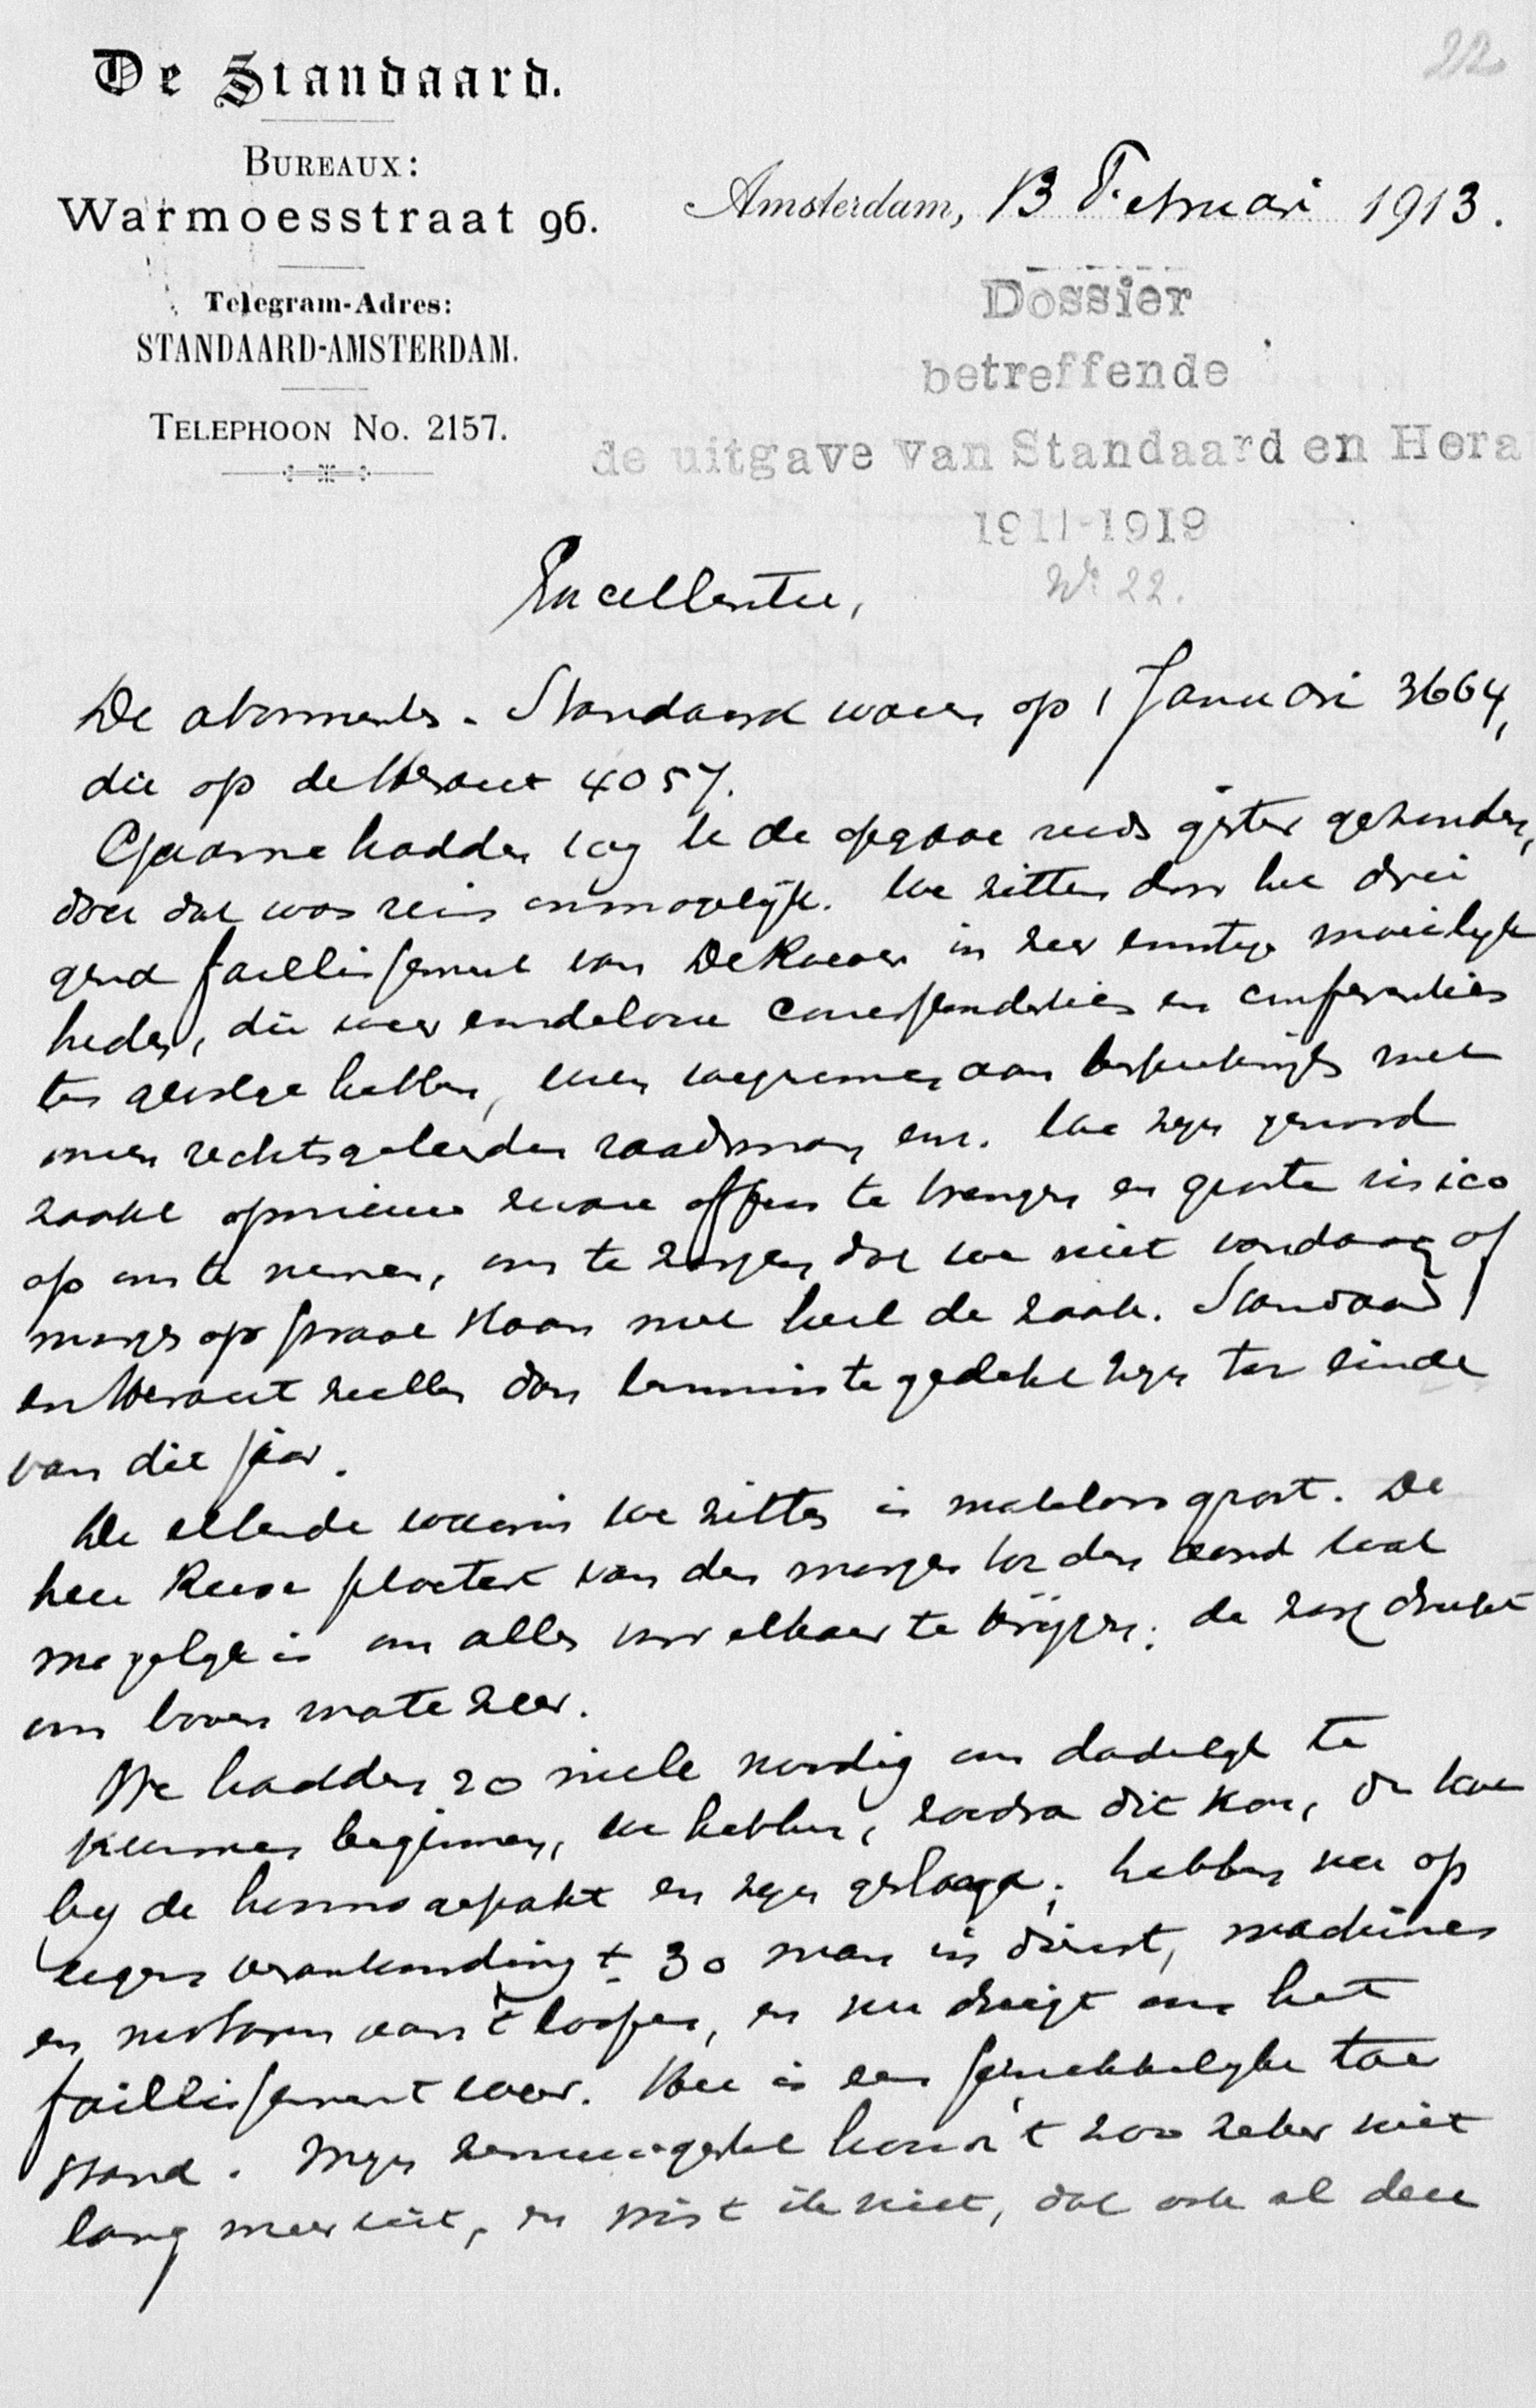 22
De Standaard.
BUREAUX:
Warmoesstraat 96.
Telegram-Adres:
STANDAARD-AMSTERDAM.
TELEPHOON No. 2157.
Amsterdam, 13 Februari 1913.
Dossier
betreffende
de uitgave van Standaard en Hera
1911-1919
No 22.
Excellentie,
De abonnés - Standaard waren op 1 Januari 3664,
die op de Heraut 4057.
Gaarne hadden wij U de opgave reeds gister gezonden,
doch dat was rein onmogelijk. We zitten door het drei
gend faillissement van De Roever in zeer ernstige moeilijk
heden, die weer eindelooze correspondenties en conferenties
ten gevolge hebben, een besprekingen met
onzen rechtsgeleerden raadsman enz. We zijn genood
zaakt opnieuw zware offers te brengen en groote risico
op ons te nemen, om te zorgen dat we niet vandaag of
morgen op straat staan met heel de zaak. Standaard
en Heraut zullen dan tenminste gedekt zijn ten einde
van dit jaar.
De ellende waarin we zitten is mateloos groot. De
heer Reese van den morgen tot den avond wat
mogelijk is om alles voor elkaar te krijgen; de zorg drukt
ons boven mate zeer.
We hadden 20 mille noodig om dadelijk te
kunnen beginnen, we hebben, zoodra dit kon, de koe
bij de horens gepakt en zijn geslaagd; hebben nu op
eigen verantwoording ± 30 man in dienst, machines
en motoren aan 't loopen, en nu dreigt ons het
faillissement weer. Het is een schrikkelijke toe
stand. Mijn zenuwgestel houdt 't zoo zeker niet
lang meer uit, en wist ik niet, dat ook al deze